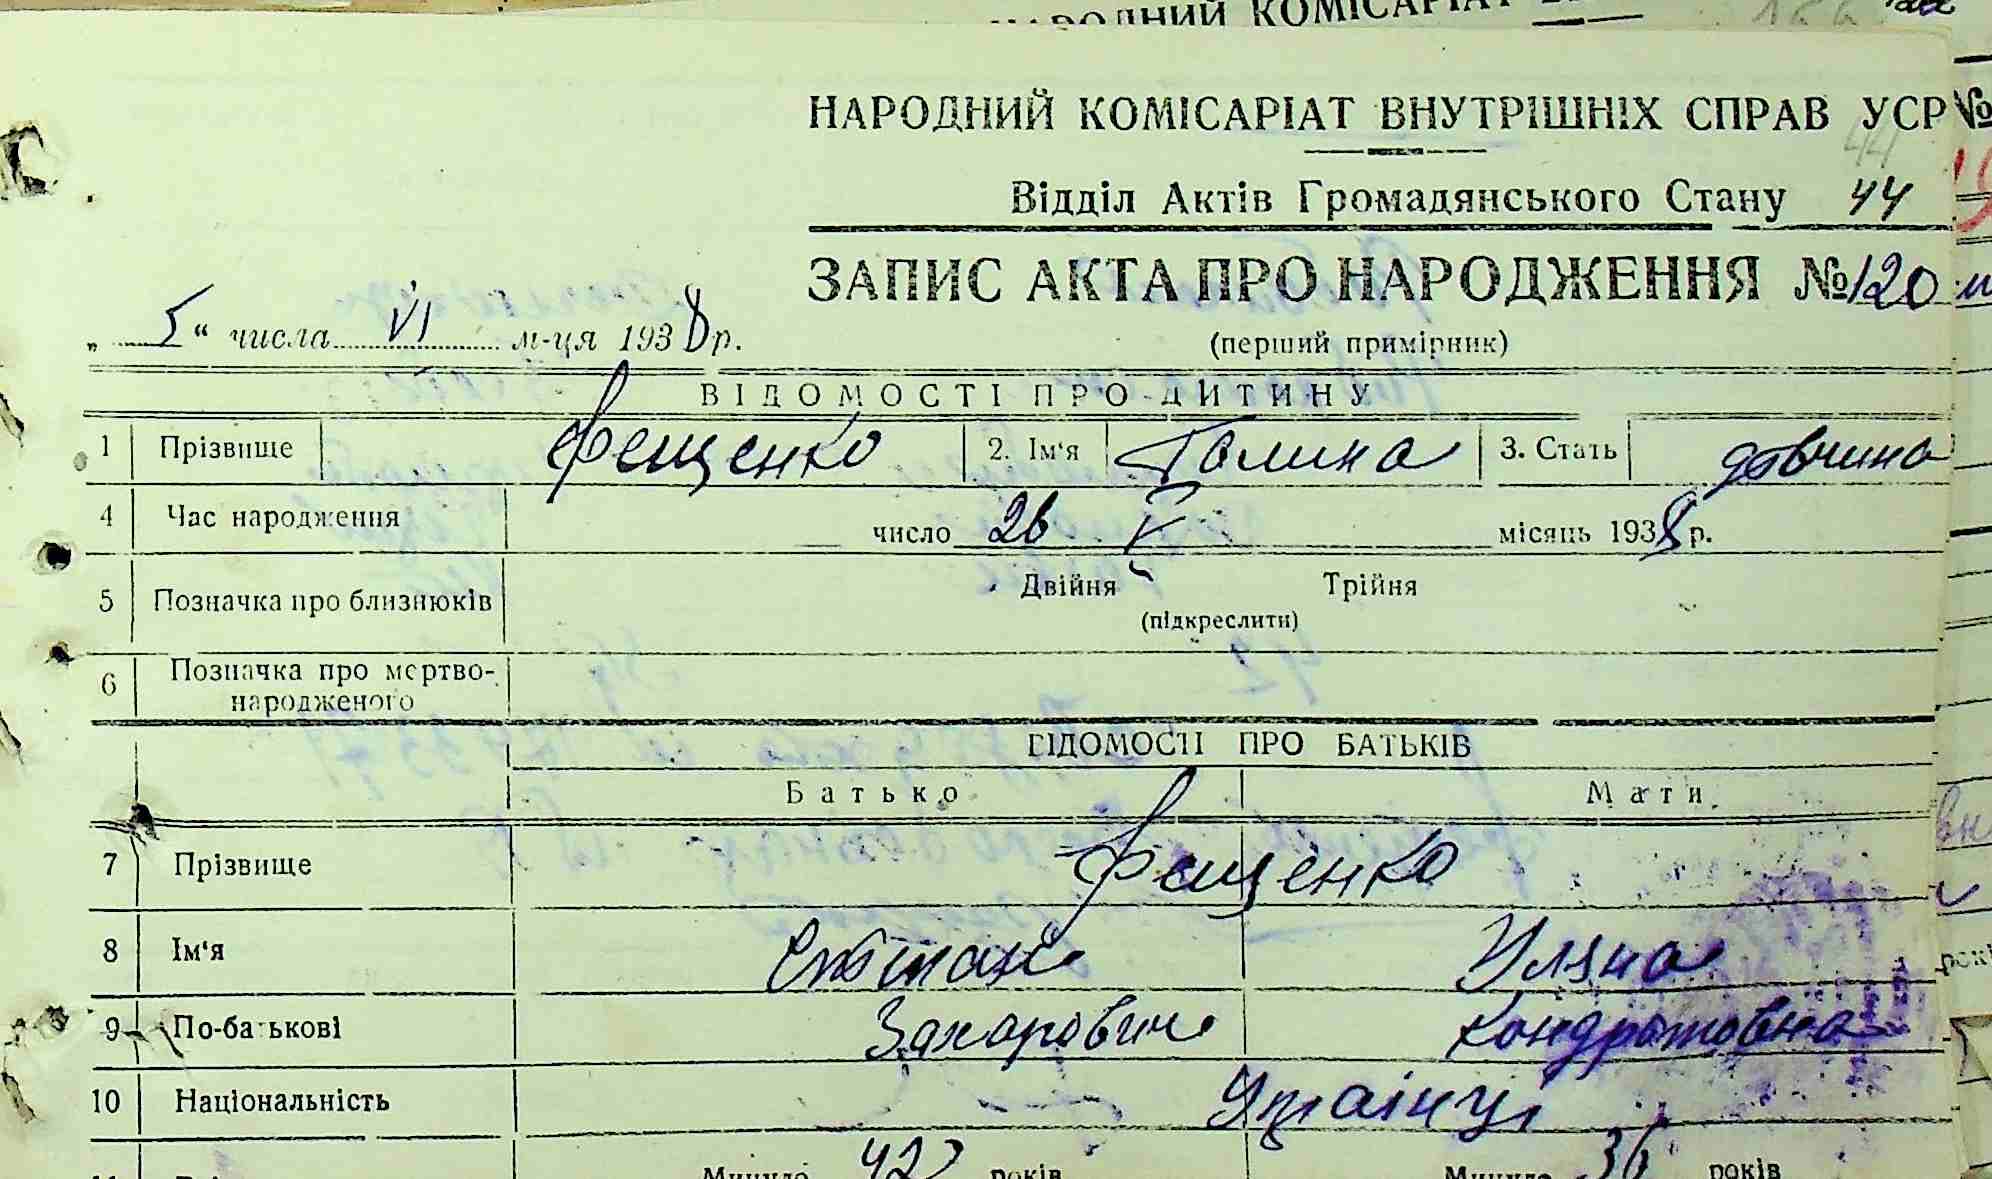 НАРОДНИЙ КОМІСАРІАТ
НАРОДНИЙ КОМІСАРІАТ ВНУТРІШНІХ СПРАВ УСР №
44
Відділ Актів Громадянського Стану 44
ЗАПИС АКТА ПРО НАРОДЖЕННЯ № 120
„ 5 “ числа VI м-ця 1938 р.
(перший примірник)
ВІДОМОСТІ ПРО ДИТИНУ
1 Прізвище Фещенко 2. Ім'я Галина 3. Стать дівчина
4 Час народження число 26 V місяць 1938 р.
5 Позначка про близнюків Двійня Трійня
(підкреслити)
6 Позначка про мертво-
народженого
ВІДОМОСТІ ПРО БАТЬКІВ
Батько Мати
7 Прізвище Фещенко
8 Ім'я Степан Уляна
9 По-батькові Захарович Кондратовна
10 Національність Українці
Минуло 42 років Минуло 36 років